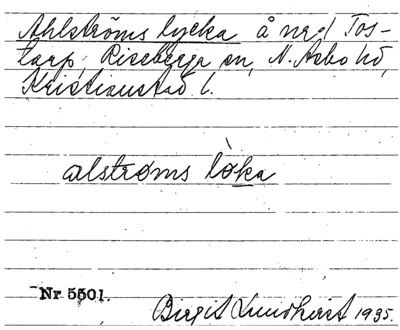 Ahlströms lycka å nr 1 Tos-
tarp, Riseberga sn, N. Åsbo hd,
Kristianstad l.
alströms lòka
Nr 5501.
Birgit Lundkvist 1935.